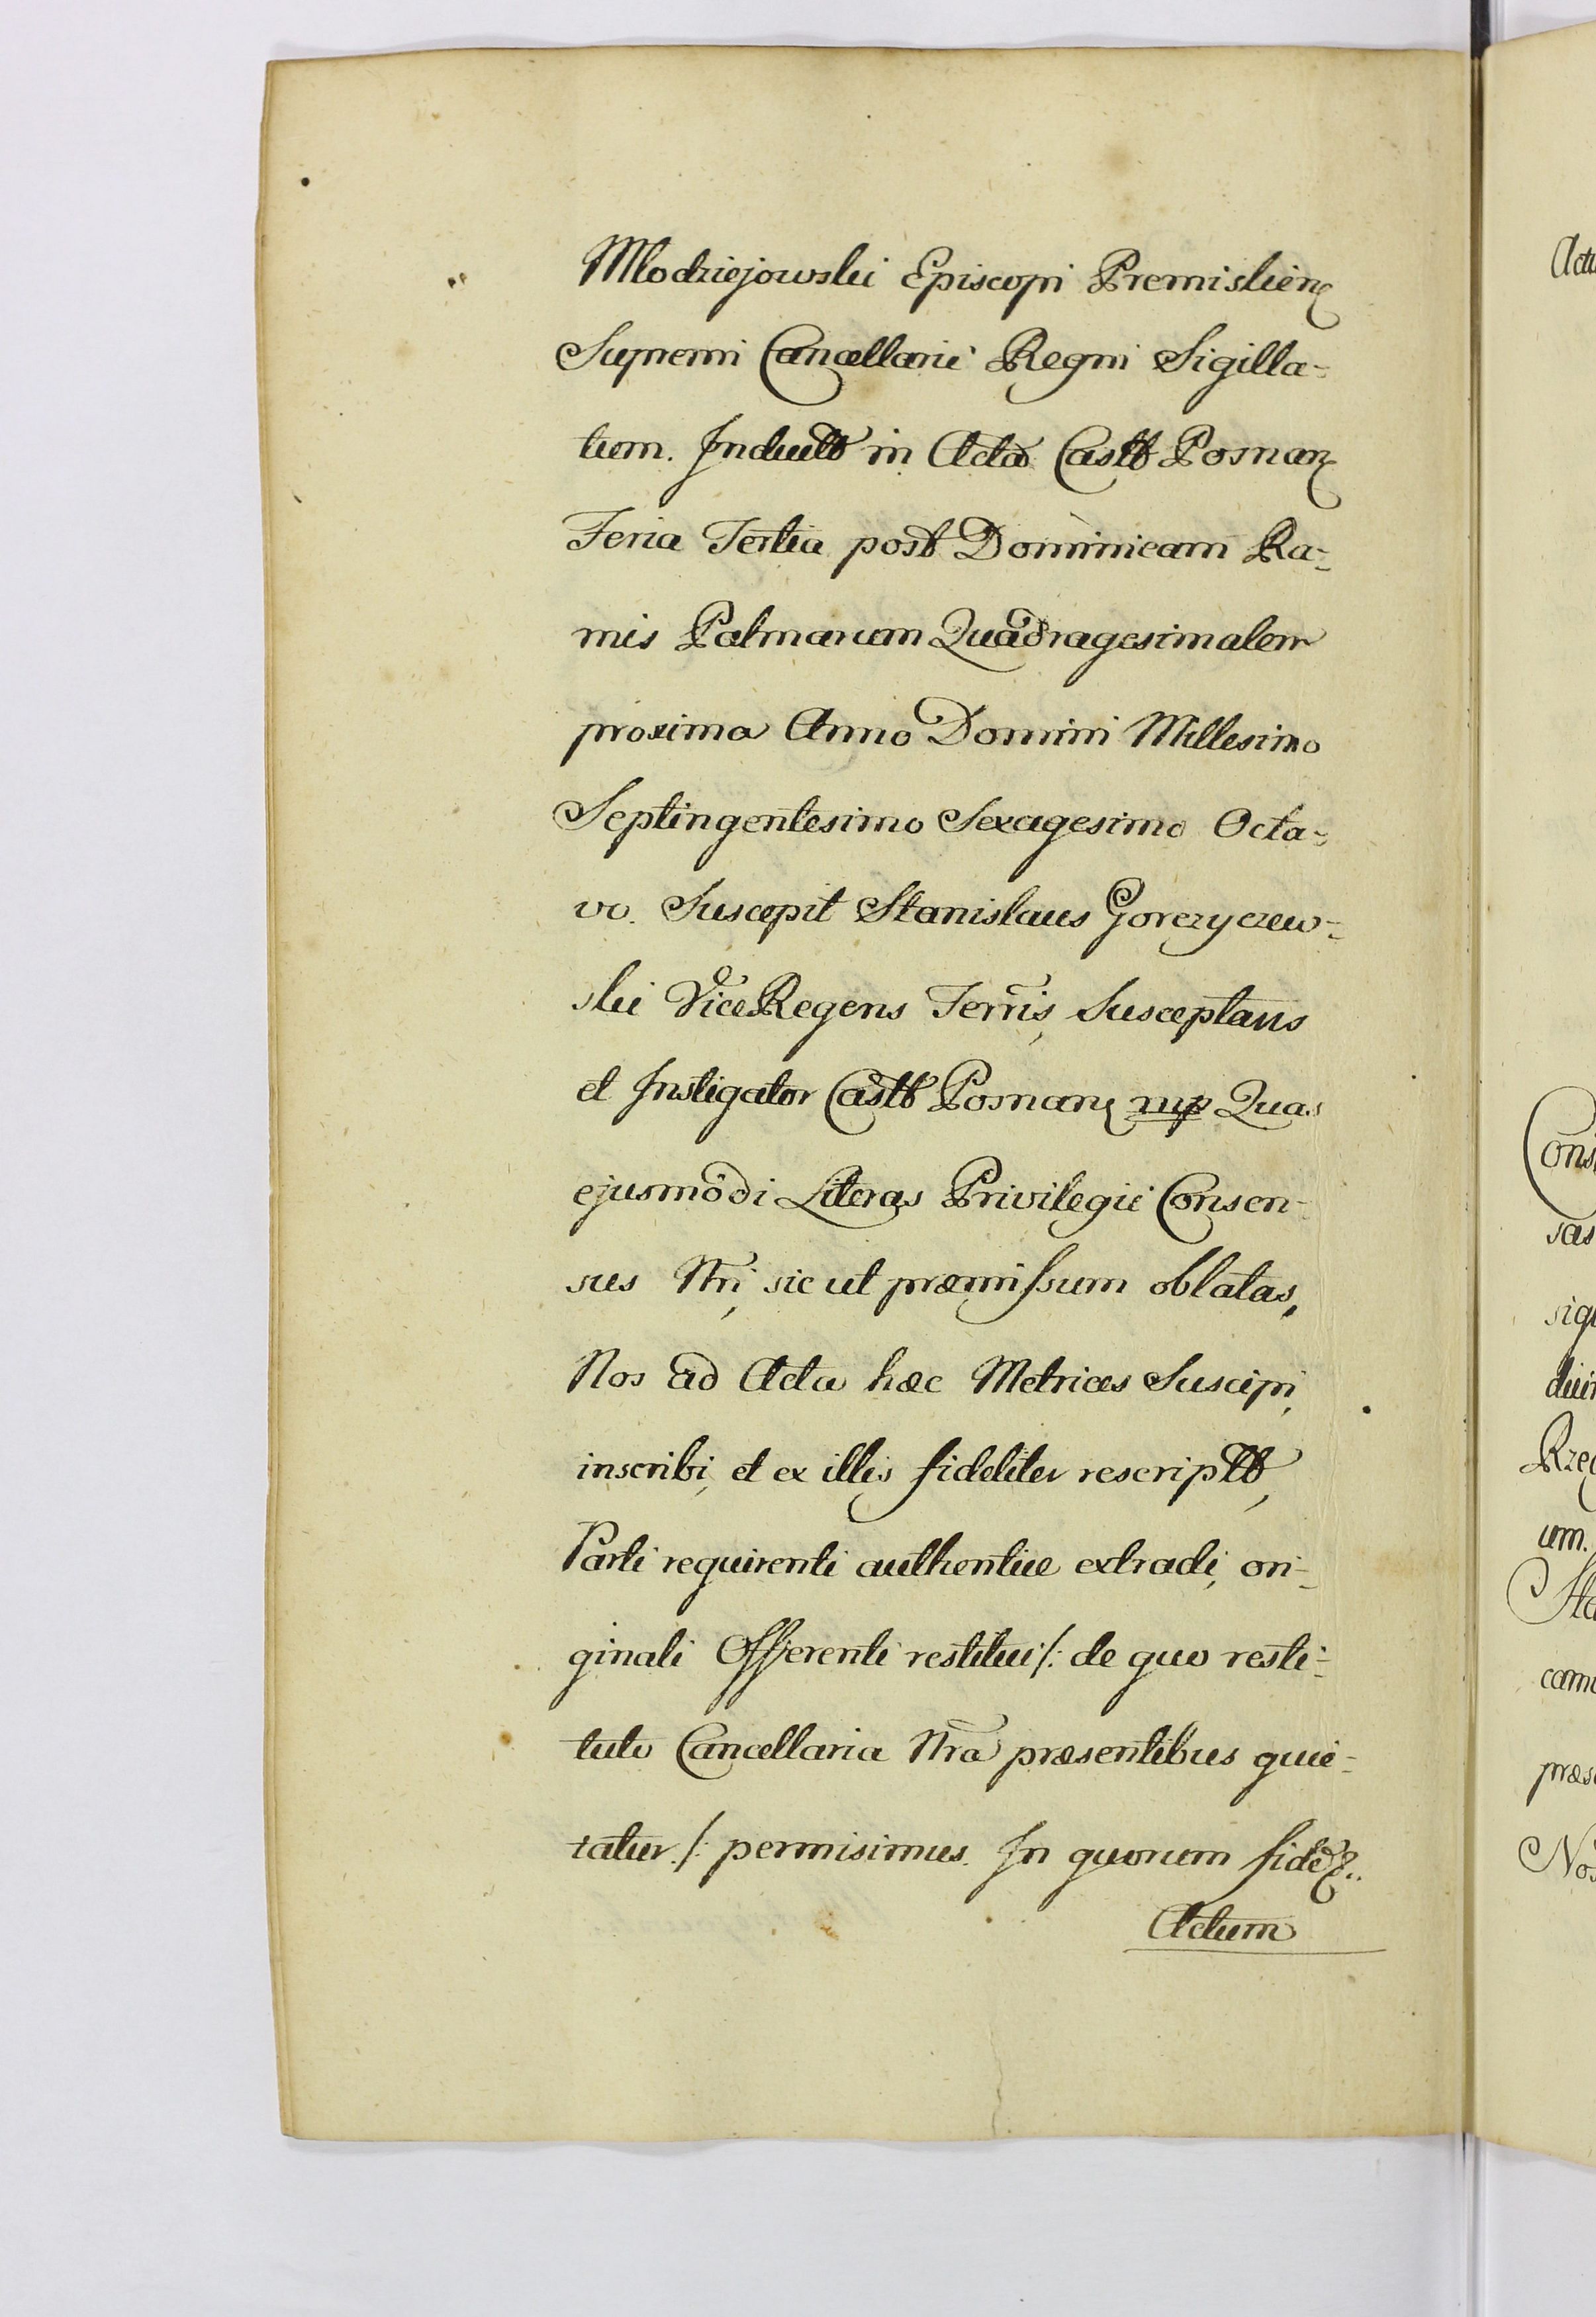 Mlodziejowski Episcopi Premislien
Supremi Cancellarii Regni Sigilla-
tum. Inductt in Acta Castr Posnan
Feria Tertia post Dominicam Ra-
mis Palmarum Quadragesimalem
proxima Anno Domini Millesimo
Septingentesimo Sexagesimo Octa-
vo. Suscepit Stanislaus Gorczyczew-
ski ViceRegens Terris, Susceptans
et Instigator Castr Posnan mp Quas
ejusmodi Literas Privilegii Consen-
sus Nri, sic ut præmissum oblatas,
Nos ad Acta hæc Metrices Suscipi,
inscribi, et ex illis fideliter rescriptt,
Parti requirenti authentice extradi, ori-
ginali Offerenti restitui /: de quo resti-
tuto Cancellaria Nra præsentibus quie-
tatur :/ permisimus. In quorum fidẽ &..
Actum
Actu
Cons
sas
sig
diur
Rze
um.
Sta
cam
præs
Nos